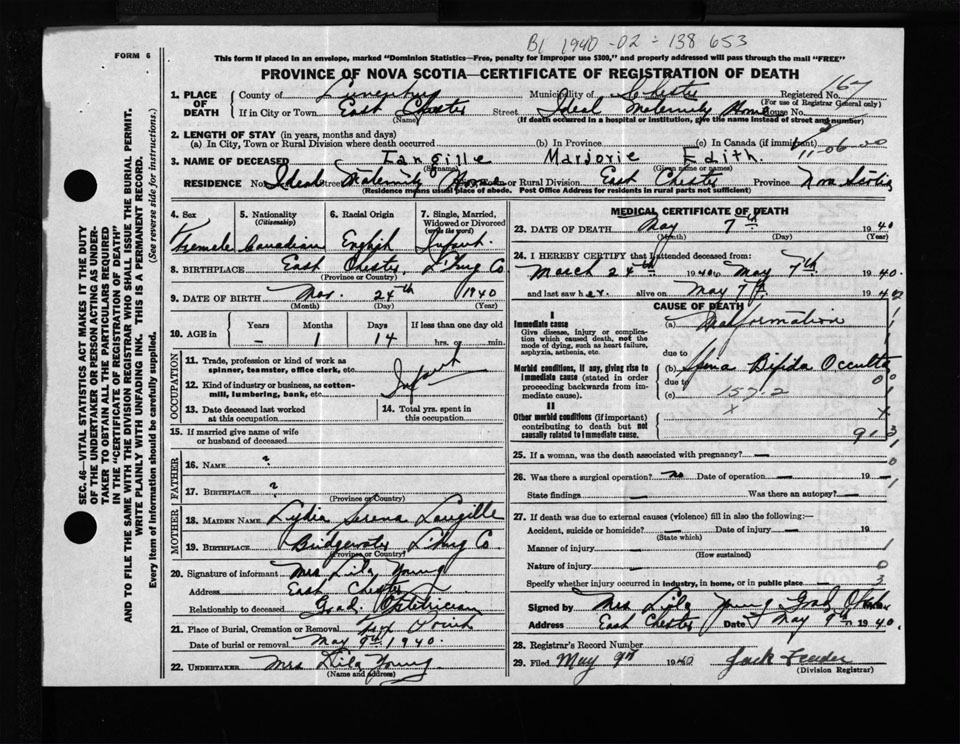 B1 1940 - 02 - 138 653
FORM 6
This form if placed in an envelope, marked "Dominion Statistics—Free, penalty for improper use $300," and properly addressed will pass through the mail "FREE"
PROVINCE OF NOVA SCOTIA—CERTIFICATE OF REGISTRATION OF DEATH
167
1. PLACE OF DEATH County of Lunenburg Municipality of Chester Registered No.
(For use of Registrar General only)
If in City or Town East Chester Street Ideal Maternity Home House No.
(Name) (If death occurred in a hospital or institution, give the name instead of street and number)
2. LENGTH OF STAY (in years, months and days)
(a) In City, Town or Rural Division where death occurred (b) In Province (c) In Canada (if immigrant)
11-06-00
3. NAME OF DECEASED Langille Marjorie Edith.
(Surname) (Given name or names)
RESIDENCE No. Ideal Street Maternity Home or Rural Division East Chester Province Nova Scotia
(Residence means usual place of abode. Post Office Address for residents in rural parts not sufficient)
4. Sex
Female
5. Nationality
(Citizenship)
Canadian
6. Racial Origin
English
7. Single, Married, Widowed or Divorced
(write the word)
Infant.
8. BIRTHPLACE East Chester, L'burg Co
(Province or Country)
9. DATE OF BIRTH Mar. 24th 1940
(Month) (Day) (Year)
10. AGE in Years Months Days If less than one day old
– 1 14 hrs. or min.
OCCUPATION
11. Trade, profession or kind of work as spinner, teamster, office clerk, etc.
Infant
12. Kind of industry or business, as cotton-mill, lumbering, bank, etc.
13. Date deceased last worked at this occupation
14. Total yrs. spent in this occupation
15. If married give name of wife or husband of deceased
FATHER
16. NAME ?
17. BIRTHPLACE ?
(Province or Country)
MOTHER
18. MAIDEN NAME Lydia Serena Langille
19. BIRTHPLACE Bridgewater L'burg Co
(Province or Country)
20. Signature of informant Mrs Lila Young
Address East Chester
Relationship to deceased Grad. Obstetrician
21. Place of Burial, Cremation or Removal
Date of burial or removal May 9th 1940.
22. UNDERTAKER Mrs Lila Young
(Name and address)
MEDICAL CERTIFICATE OF DEATH
23. DATE OF DEATH May 7th 1940
(Month) (Day) (Year)
24. I HEREBY CERTIFY that I attended deceased from:
March 24th 1940 to May 7th 1940.
and last saw her alive on May 7th 1940
CAUSE OF DEATH
I
Immediate cause
Give disease, injury or complication which caused death, not the mode of dying, such as heart failure, asphyxia, asthenia, etc.
(a) Malformation
due to
Morbid conditions, if any, giving rise to immediate cause (stated in order proceeding backwards from immediate).
(b) Spina Bifida Occulta
due to
(c) 157.2
II
Other morbid conditions (if important) contributing to death but not causally related to immediate cause.
25. If a woman, was the death associated with pregnancy? —
26. Was there a surgical operation? no Date of operation — 19
State findings — Was there an autopsy? —
27. If death was due to external causes (violence) fill in also the following:—
Accident, suicide or homicide? — Date of injury — 19
(State which)
Manner of injury —
(How sustained)
Nature of injury —
Specify whether injury occurred in industry, in home, or in public place —
Signed by Mrs Lila Young Grad.
Address East Chester Date May 9th 1940.
28. Registrar's Record Number
29. Filed May 9th 1940
(Division Registrar)
SEC. 46—VITAL STATISTICS ACT MAKES IT THE DUTY OF THE UNDERTAKER OR PERSON ACTING AS UNDERTAKER TO OBTAIN ALL THE PARTICULARS REQUIRED IN THE "CERTIFICATE OF REGISTRATION OF DEATH"
AND TO FILE THE SAME WITH THE DIVISION REGISTRAR WHO SHALL ISSUE THE BURIAL PERMIT.
WRITE PLAINLY WITH UNFADING INK. THIS IS A PERMANENT RECORD.
Every item of information should be carefully supplied. (See reverse side for instructions.)